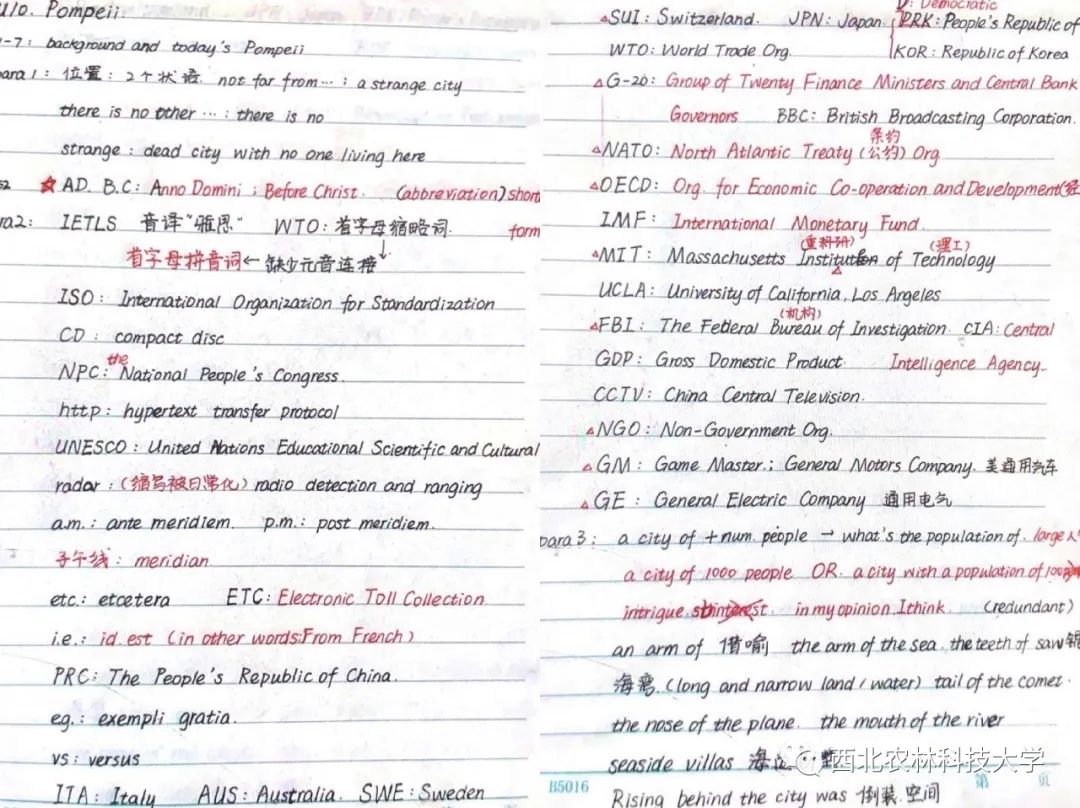 U10. Pompeii
1-7: background and today's Pompeii
para 1: 位置: 2个状语 not far from…; a strange city
there is no other …; there is no
strange: dead city with no one living here
AD. B.C: Anno Domini; Before Christ. (abbreviation) short form
para2: IETLS 音译"雅思" WTO: 首字母缩略词.
首字母拼音词←缺少元音连接
ISO: International Organization for Standardization
CD: compact disc
NPC: the National People's Congress.
http: hypertext transfer protocol
UNESCO: United Nations Educational Scientific and Cultural
radar: (缩写被日常化) radio detection and ranging
a.m.: ante meridiem. p.m.: post meridiem.
子午线: meridian
etc.: etcetera ETC: Electronic Toll Collection
i.e.: id.est (in other words: From French)
PRC: The People's Republic of China.
eg.: exempli gratia.
vs: versus
ITA: Italy AUS: Australia. SWE: Sweden
D: Democratic
SUI: Switzerland. JPN: Japan. PRK: People's Republic of
WTO: World Trade Org. KOR: Republic of Korea
G-20: Group of Twenty Finance Ministers and Central Bank
Governors BBC: British Broadcasting Corporation.
条约
NATO: North Atlantic Treaty (公约) Org
OECD: Org. for Economic Co-operation and Development (经
IMF: International Monetary Fund.
(重科研) (理工)
MIT: Massachusetts Institute of Technology
UCLA: University of California, Los Angeles
(机构)
FBI: The Federal Bureau of Investigation. CIA: Central
GDP: Gross Domestic Product. Intelligence Agency.
CCTV: China Central Television.
NGO: Non-Government Org.
GM: Game Master.; General Motors Company. 美通用汽车
GE: General Electric Company 通用电气
para 3: a city of +num. people → what's the population of. large
a city of 1000 people OR. a city with a population of
intrigue. in my opinion, I think. (redundant)
an arm of 借喻 the arm of the sea. the teeth of saw 锯
海湾. (long and narrow land/water) tail of the comet.
the nose of the plane. the mouth of the river
seaside villas 海
西北农林科技大学
B5016 第 页
Rising behind the city was 倒装. 空间